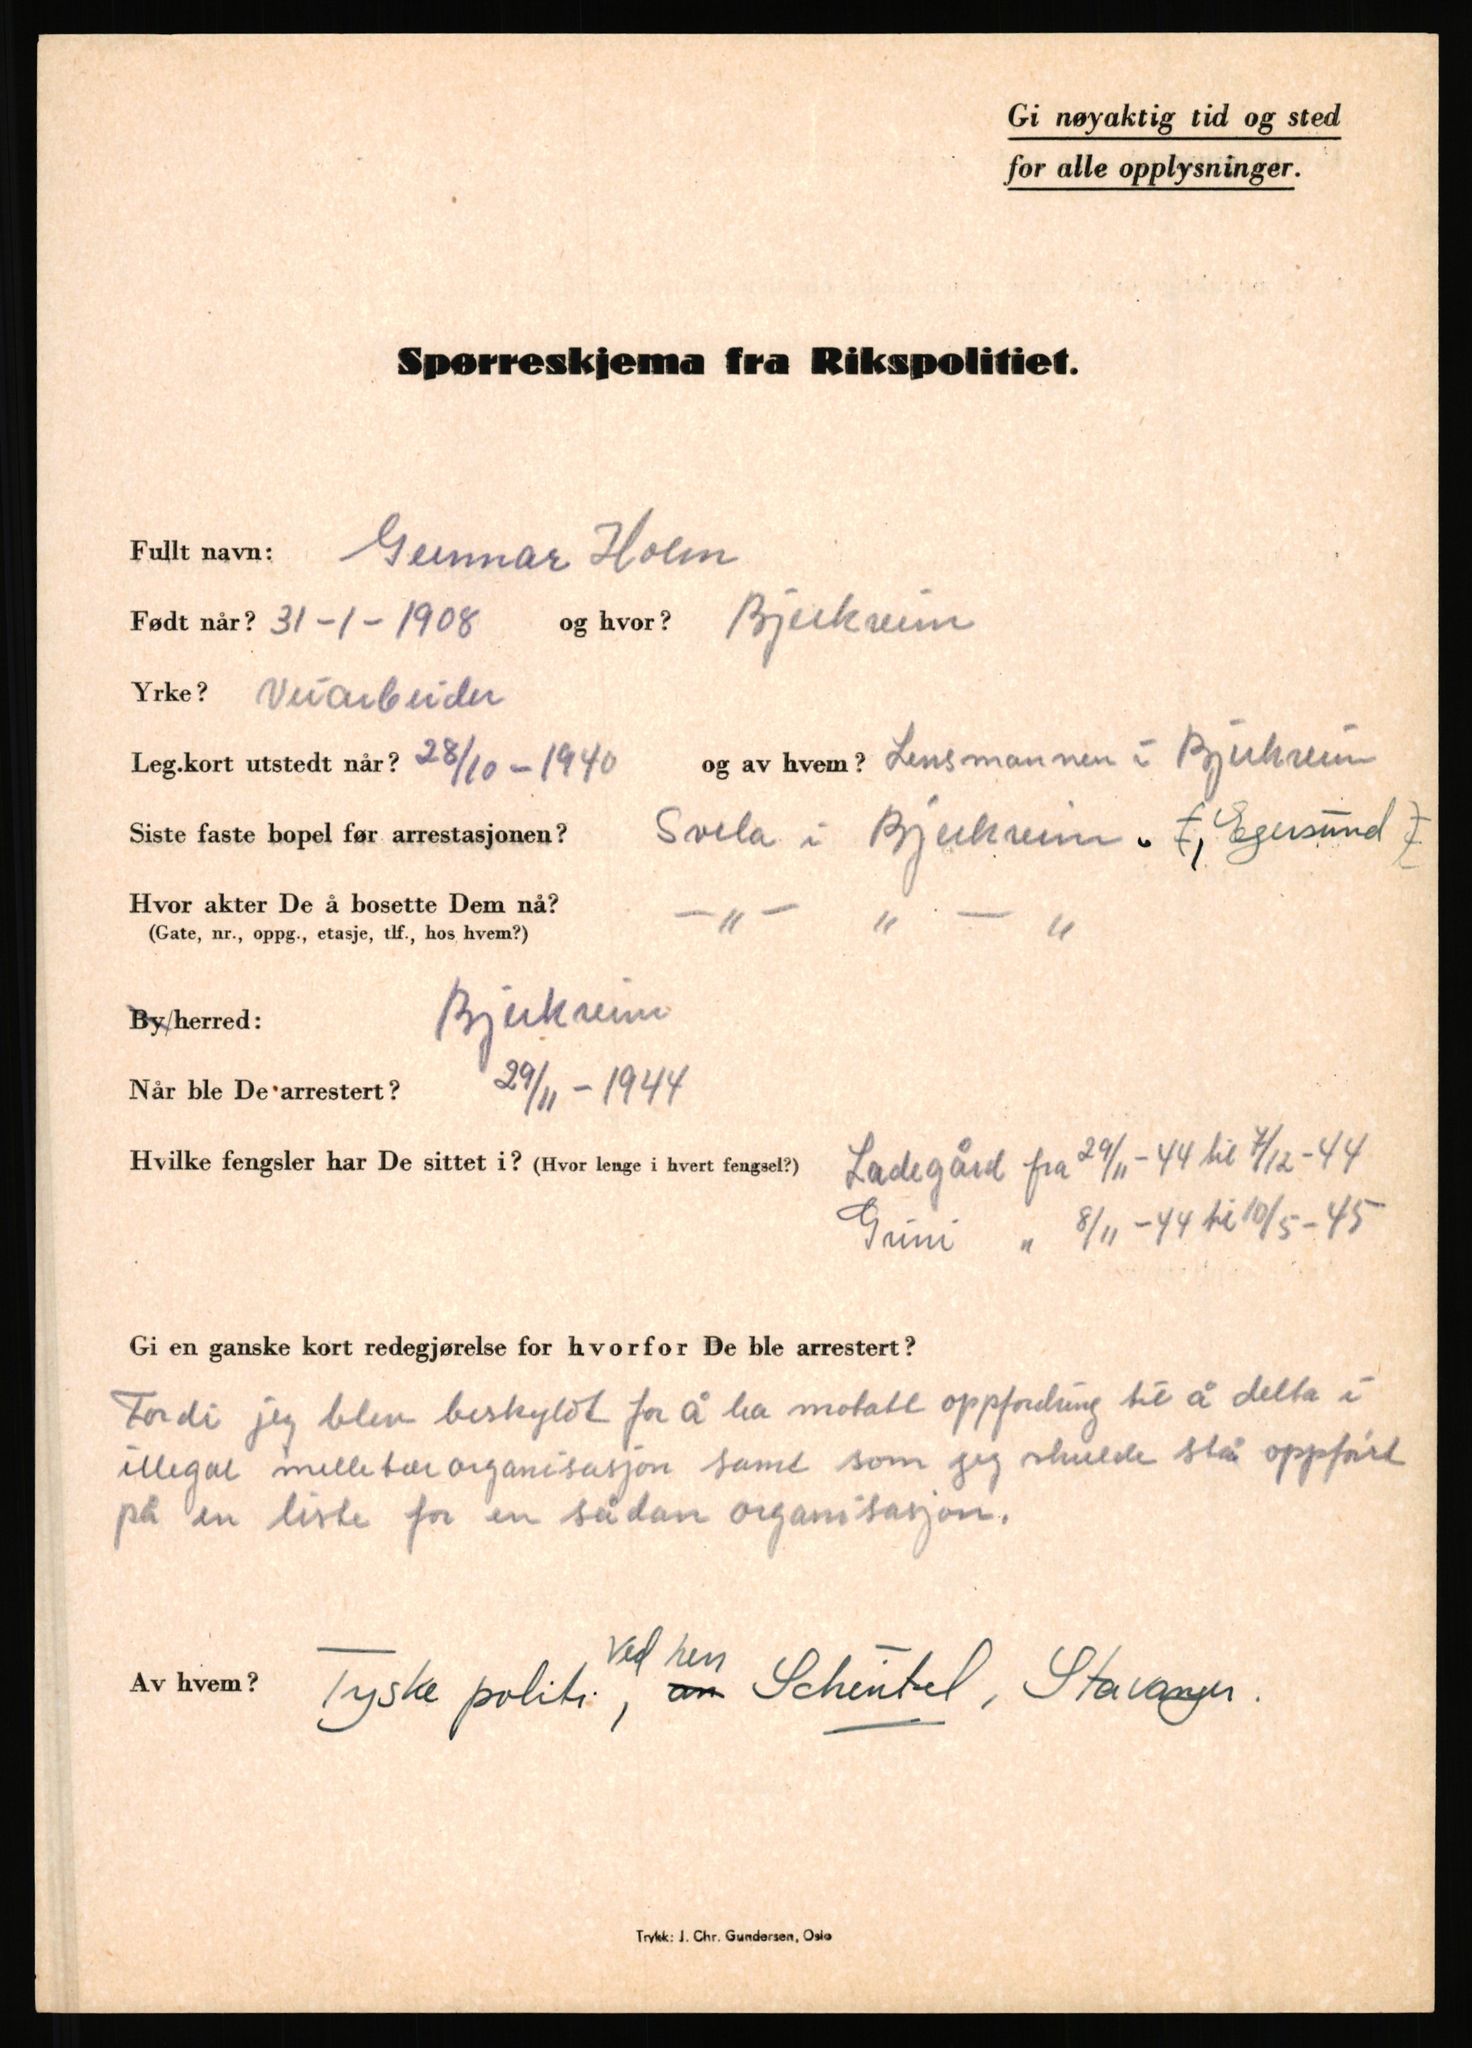 Gi nøyaktig tid og sted
for alle opplysninger.
Spørreskjema fra Rikspolitiet.
Fullt navn: Gunnar Holm
Født når? 31-1-1908 og hvor? Bjerkreim
Yrke? Veiarbeider
Leg.kort utstedt når? 28/10-1940 og av hvem? Lensmannen i Bjerkreim
Siste faste bopel før arrestasjonen? Svela i Bjerkreim., Egersund
Hvor akter De å bosette Dem nå? —„— „ — „
(Gate, nr., oppg., etasje, tlf., hos hvem?)
By/herred: Bjerkreim
Når ble De arrestert? 29/11-1944
Hvilke fengsler har De sittet i? (Hvor lenge i hvert fengsel?) Ladegård fra 29/11-44 til 7/12-44
Grini „ 8/11-44 til 10/5-45
Gi en ganske kort redegjørelse for hvorfor De ble arrestert?
Fordi jeg blev beskyldt for å ha motatt oppfordring til å delta i
illegal milletærorganisasjon samt som jeg skulde stå oppført
på en liste for en sådan organisasjon.
Av hvem? Tyske politi, ved herr Schintzel, Stavanger.
Trykk: J. Chr. Gundersen, Oslo